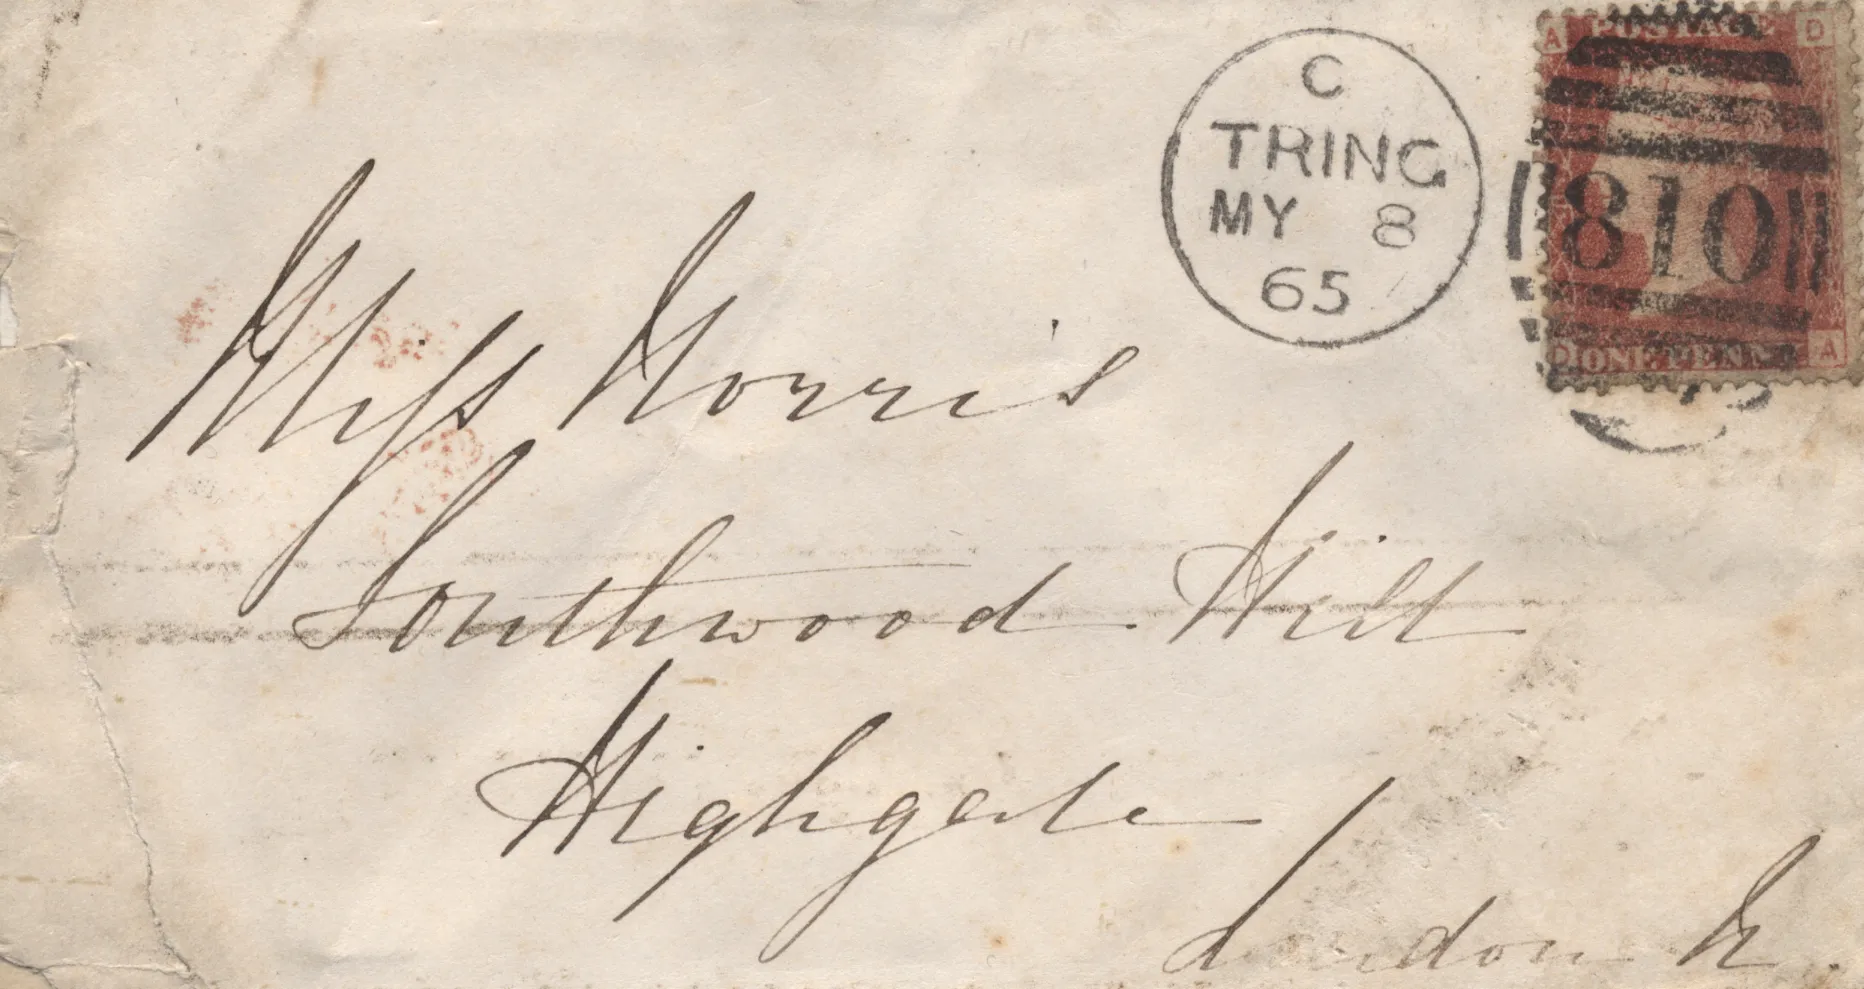 C
TRING
MY 8
65
A POSTAGE D
810
D ONE PENNY A
Miss Norris
Southwood Hill
Highgate
London N.